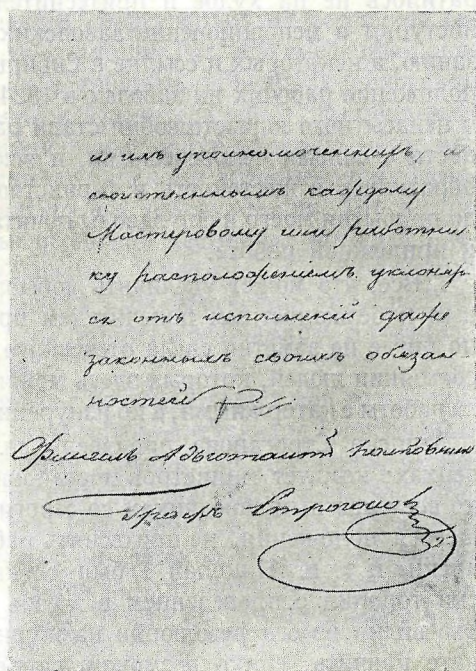 и имъ уполномоченнир, и
свойственнымъ каждому
Мастеровому или работни
ку расположениемъ уклонят
ся отъ исполненiй даже
законныхъ своихъ обязан
ностей
Флигель Адъютантъ Полковникъ
Графъ Строгоновъ